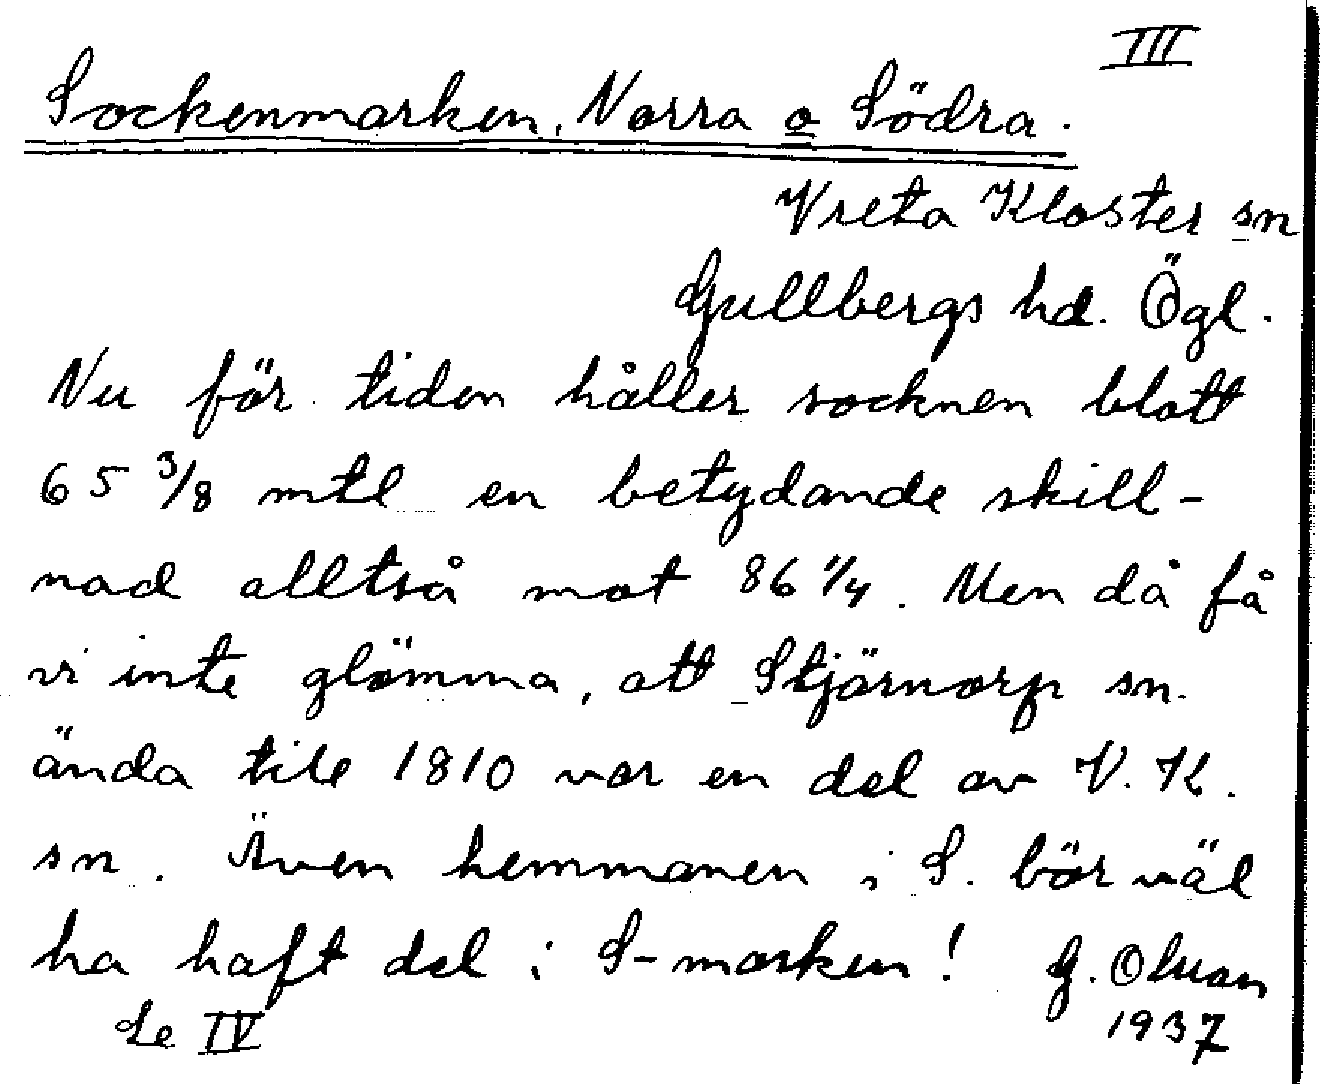 III
Sockenmarken, Norra o Södra.
Vreta Kloster sn
Gullbergs hd. Ögl.
Nu för tiden håller socknen blott
65 3/8 mtl en betydande skill-
nad alltså mot 86 1/4. Men då få
vi inte glömma, att Stjärnorp sn.
ända till 1810 var en del av V. K.
sn. Även hemmanen i S. bör väl
ha haft del i S-marken! G. Olson
Se IV 1937